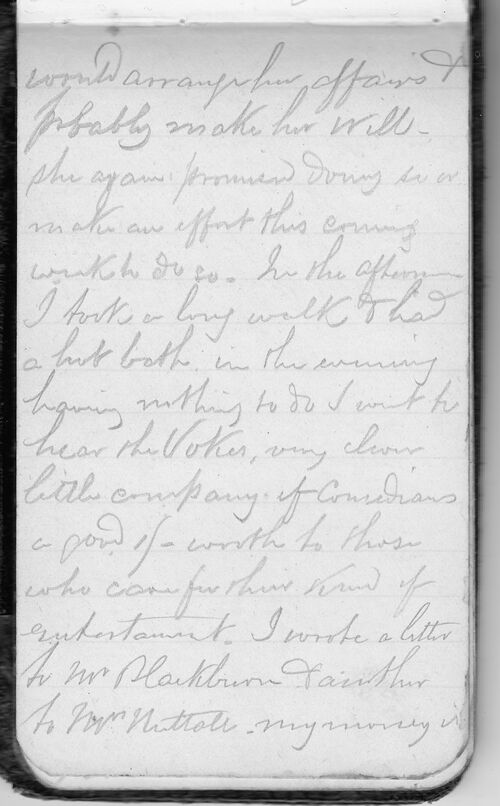 would arrange her affairs &
probably make her Will -
she again promised doing so or
make an effort this coming
week to do so. In the afternoon
I took a long walk & had
a hot bath in the evening
having nothing to do I went to
hear the Vokes, very clever
little company of Comedians
a good 1/- worth to those
who care for this kind of
entertaiment. I wrote a letter
to Mr Blackburn & another
to Mrs Nuttall - my money is